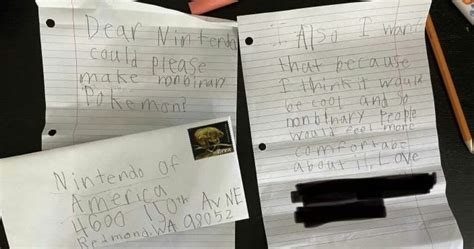 Dear Nintendo
could please
make nonbinary
Pokemon?
Also I want
that because
I think it would
be cool and so
nonbinary people
would feel more
comfortable
about it. Love
Nintendo Of
America
4600 150th Av NE
Redmond, WA 98052